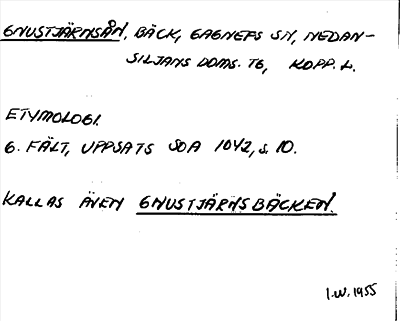 GNUSTJÄRNSÅN, BÄCK, GAGNEFS SN, NEDAN-
SILJANS DOMS. TG, KOPP. L.
ETYMOLOGI.
G. FÄLT, UPPSATS SOA 1042, S. 10.
KALLAS ÄVEN GNUSTJÄRNSBÄCKEN.
I.W. 1955